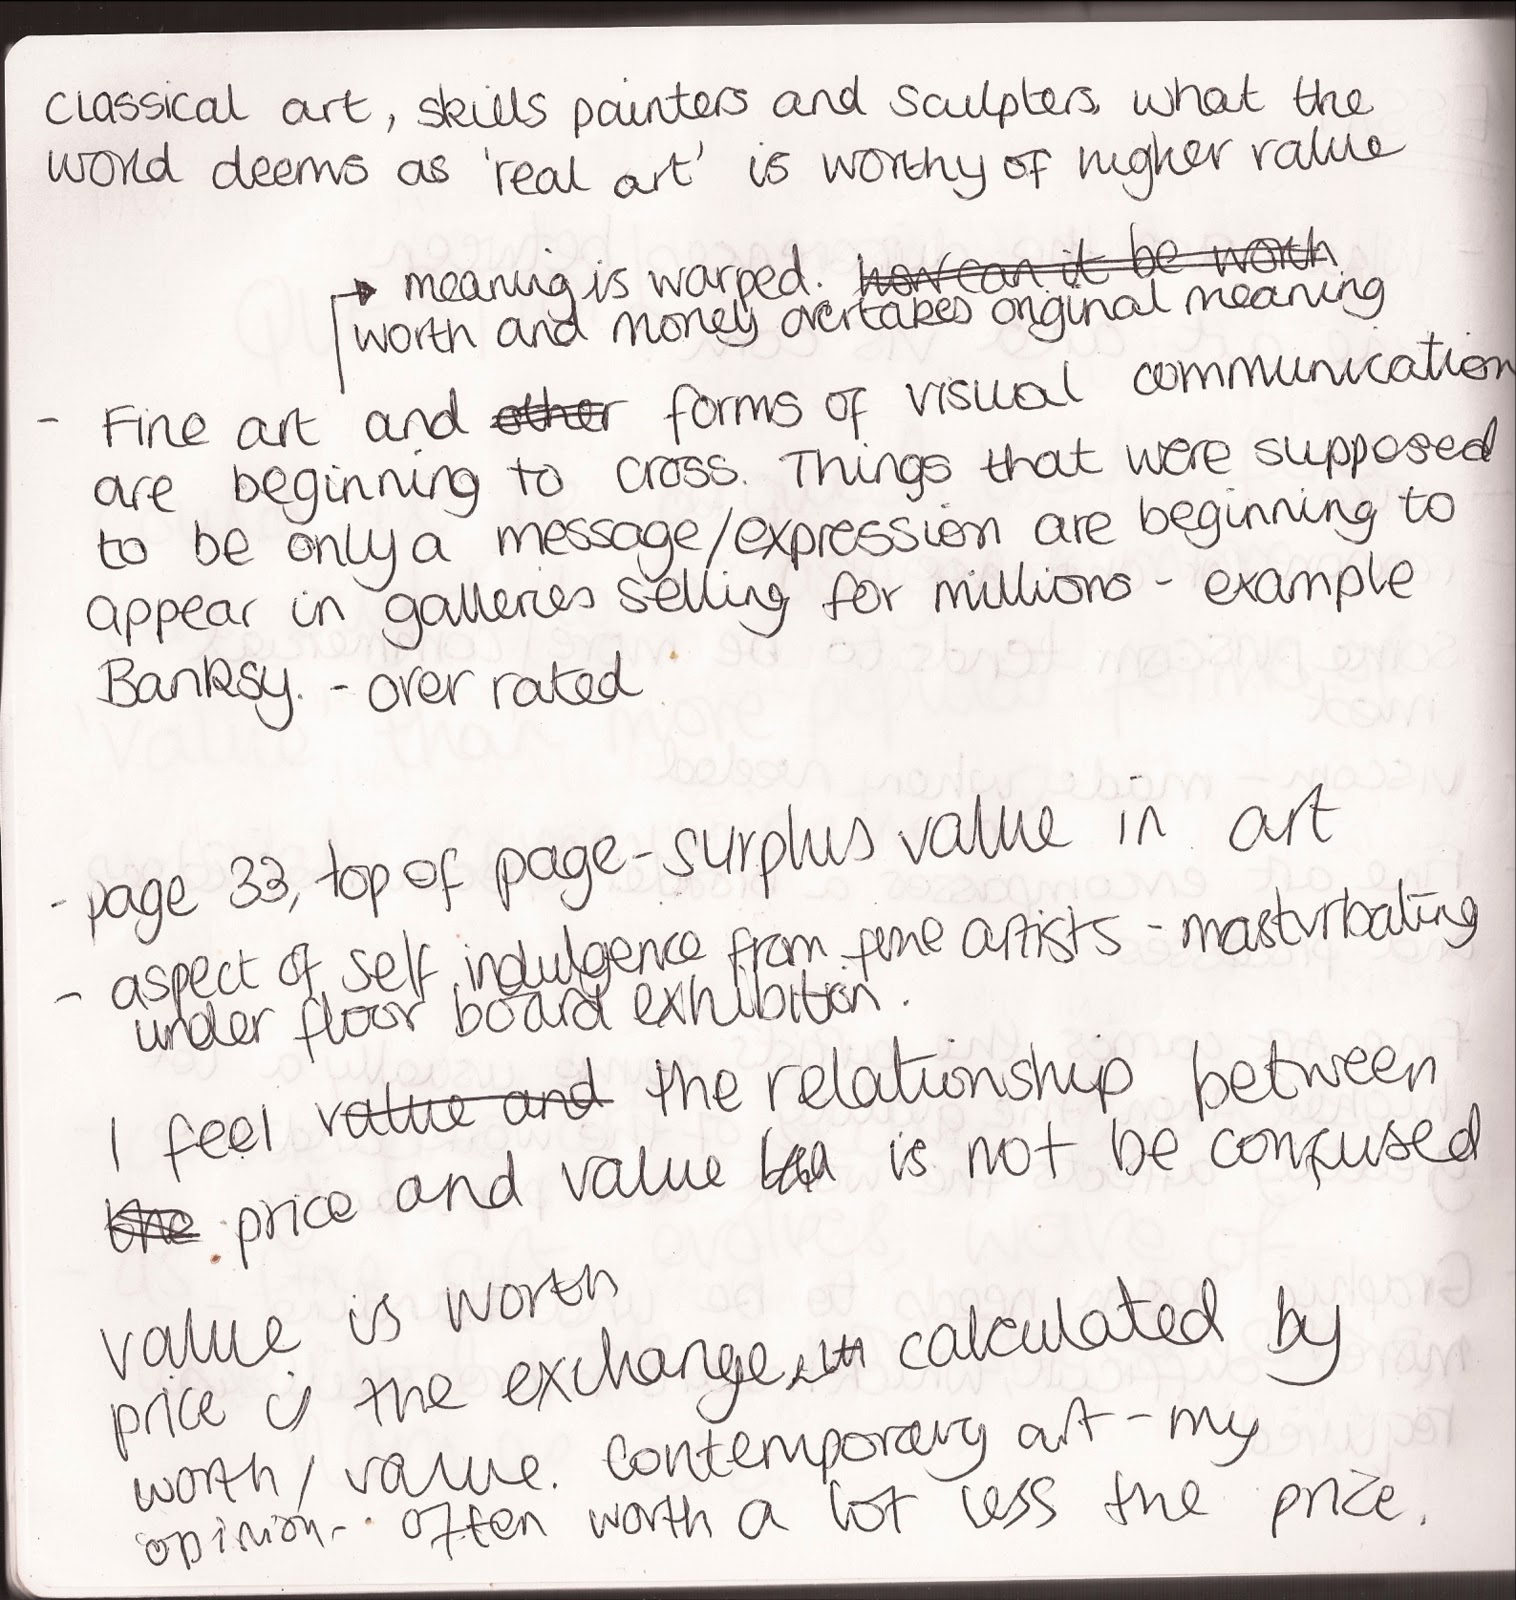 classical art, skills painters and sculpters, what the
world deems as 'real art' is worthy of higher value
→ meaning is warped. how can it be worth
worth and money overtakes original meaning
- Fine art and other forms of visual communication
are beginning to cross. Things that were supposed
to be only a message/expression are beginning to
appear in galleries selling for millions - example
Banksy. - over rated
- page 33, top of page - surplus value in art
- aspect of self indulgence from fine artists - masturbating
under floor board exhibition.
I feel value and the relationship between
the price and value is not be confused
value is worth
price is the exchange, calculated by
worth / value. Contemporary art - my
opinion - often worth a lot less the price.